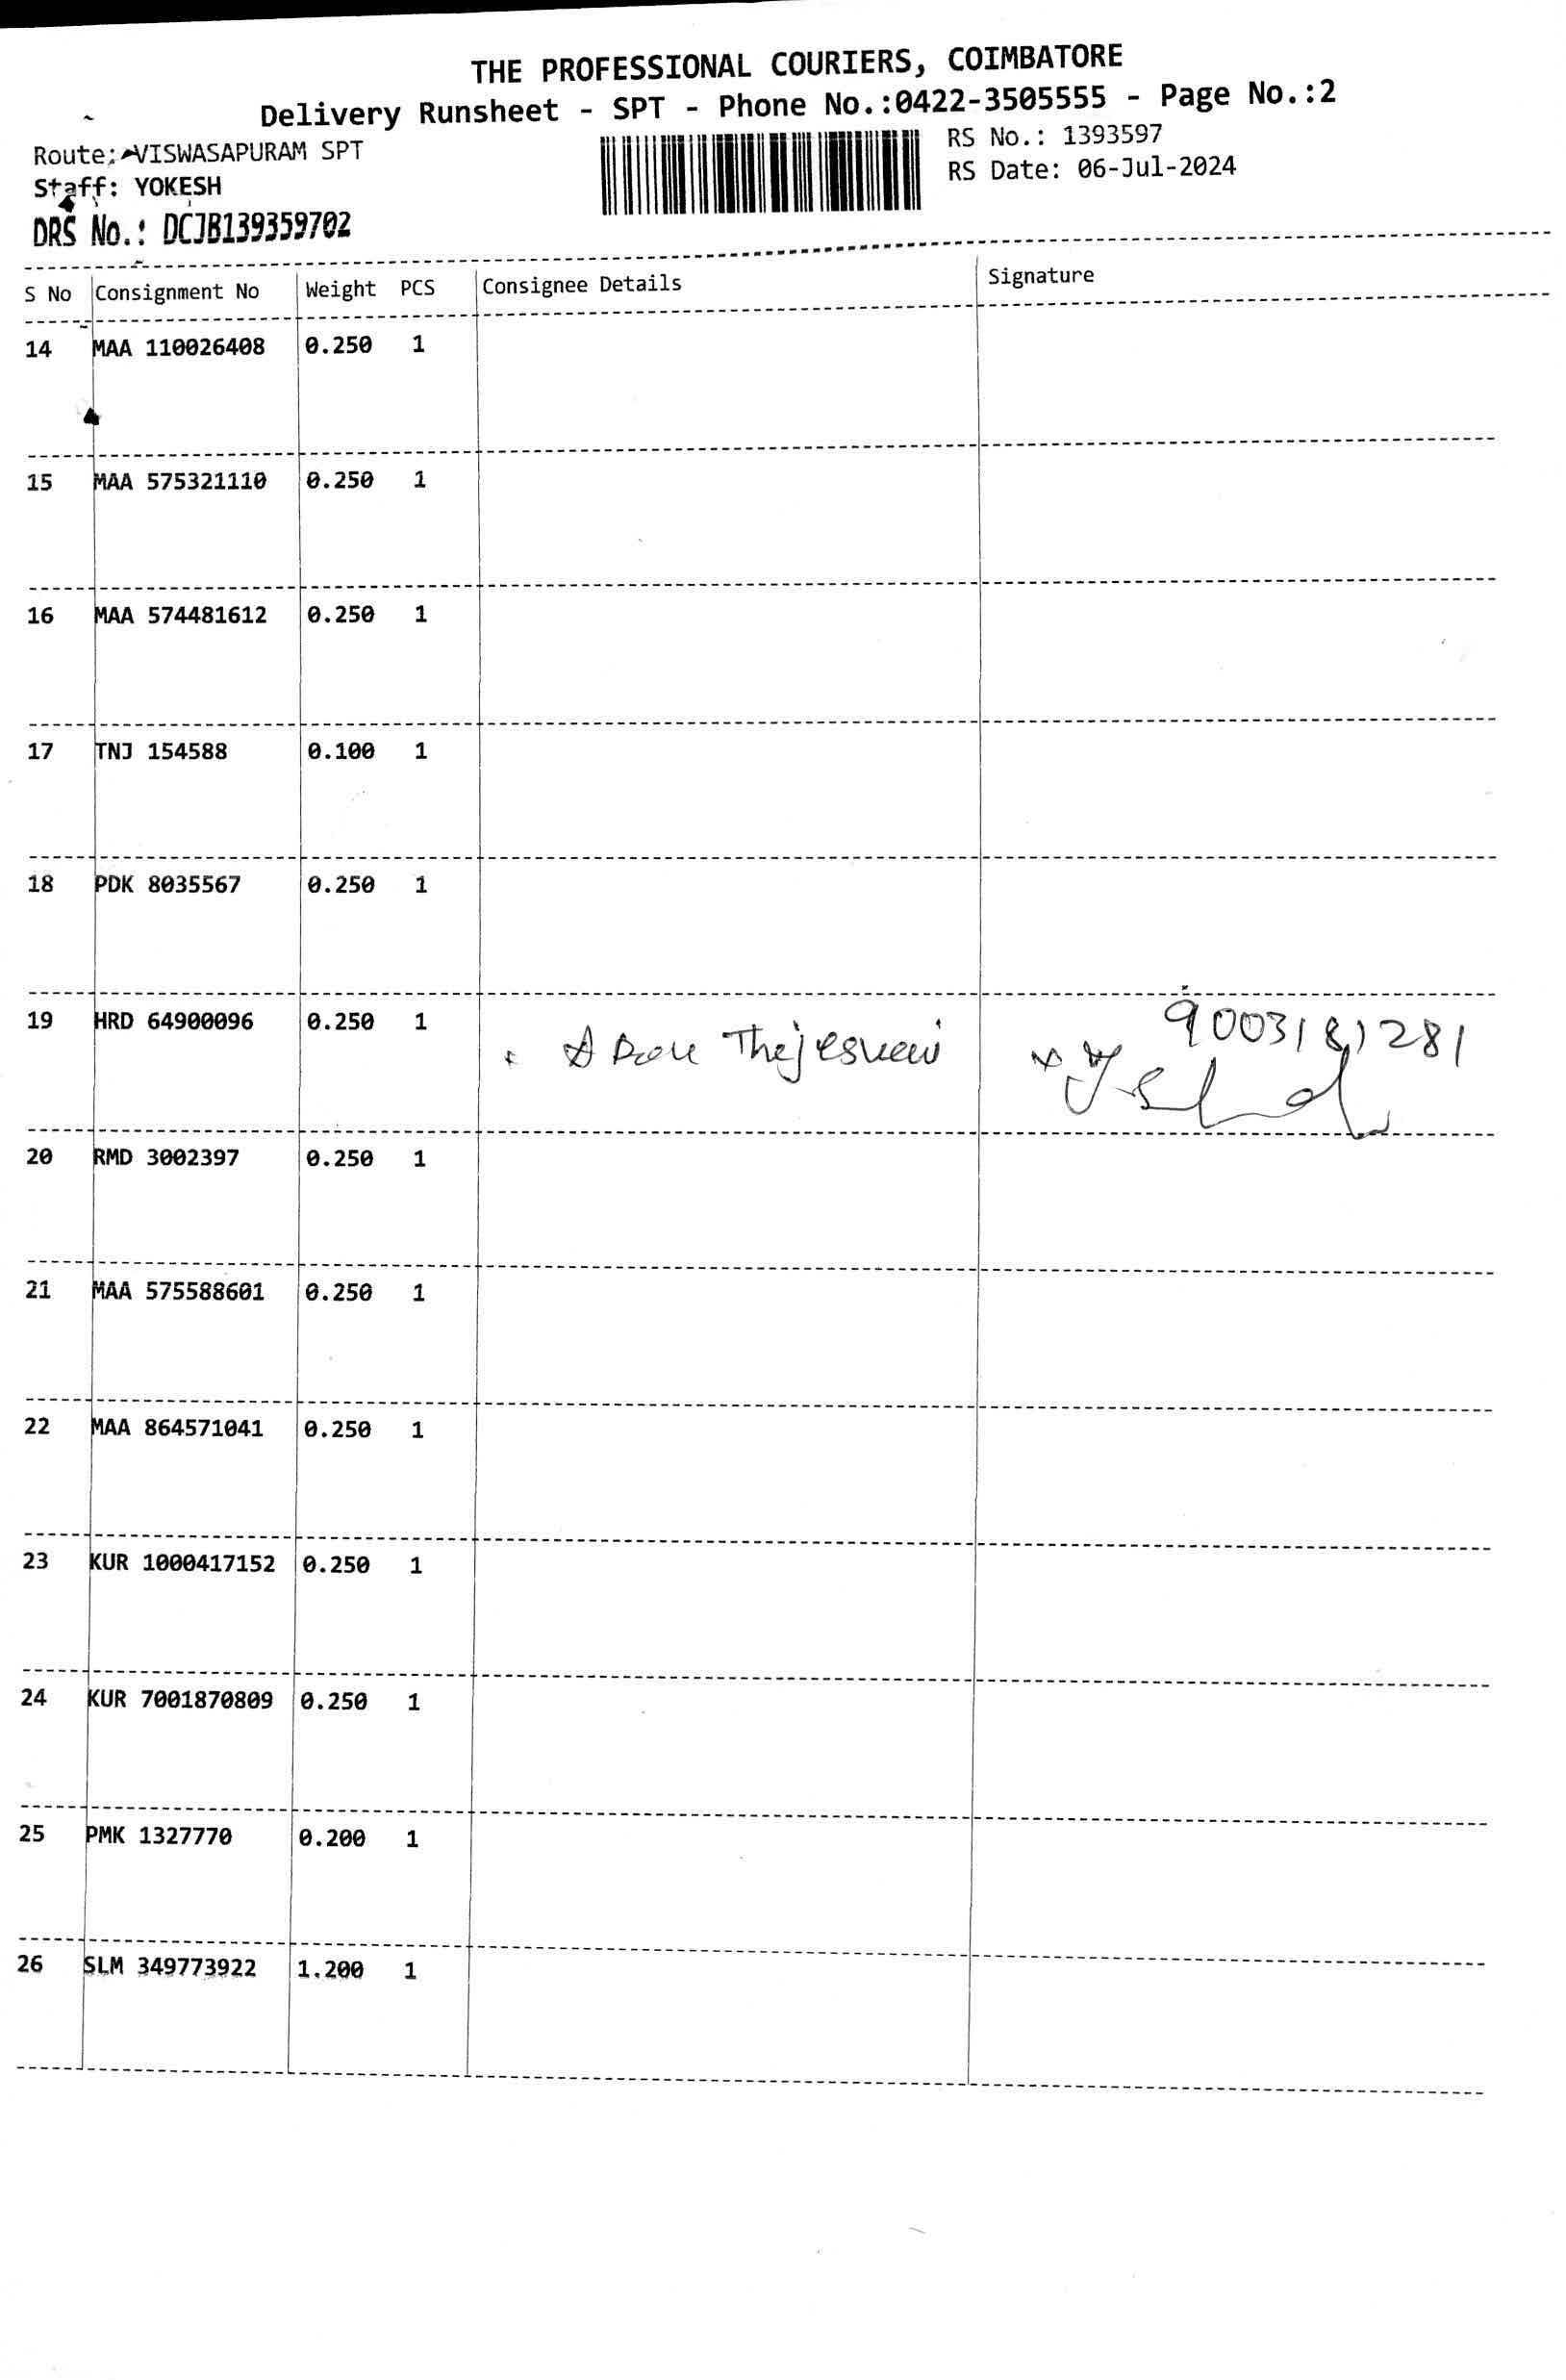 THE PROFESSIONAL COURIERS, COIMBATORE
Delivery Runsheet - SPT - Phone No.:0422-3505555 - Page No.:2
Route: VISWASAPURAM SPT
RS No.: 1393597
Staff: YOKESH
RS Date: 06-Jul-2024
DRS No.: DCJB139359702
S No Consignment No Weight PCS Consignee Details Signature
14 MAA 110026408 0.250 1
15 MAA 575321110 0.250 1
16 MAA 574481612 0.250 1
17 TNJ 154588 0.100 1
18 PDK 8035567 0.250 1
19 HRD 64900096 0.250 1 9003181281
20 RMD 3002397 0.250 1
21 MAA 575588601 0.250 1
22 MAA 864571041 0.250 1
23 KUR 1000417152 0.250 1
24 KUR 7001870809 0.250 1
25 PMK 1327770 0.200 1
26 SLM 349773922 1.200 1